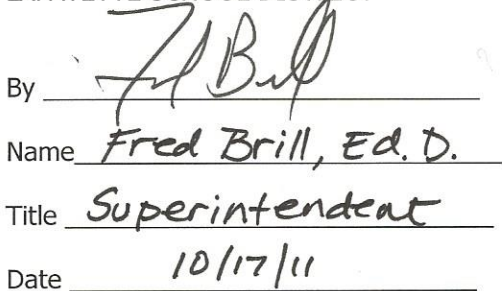 By
Name Fred Brill, Ed. D.
Title Superintendent
Date 10/17/11